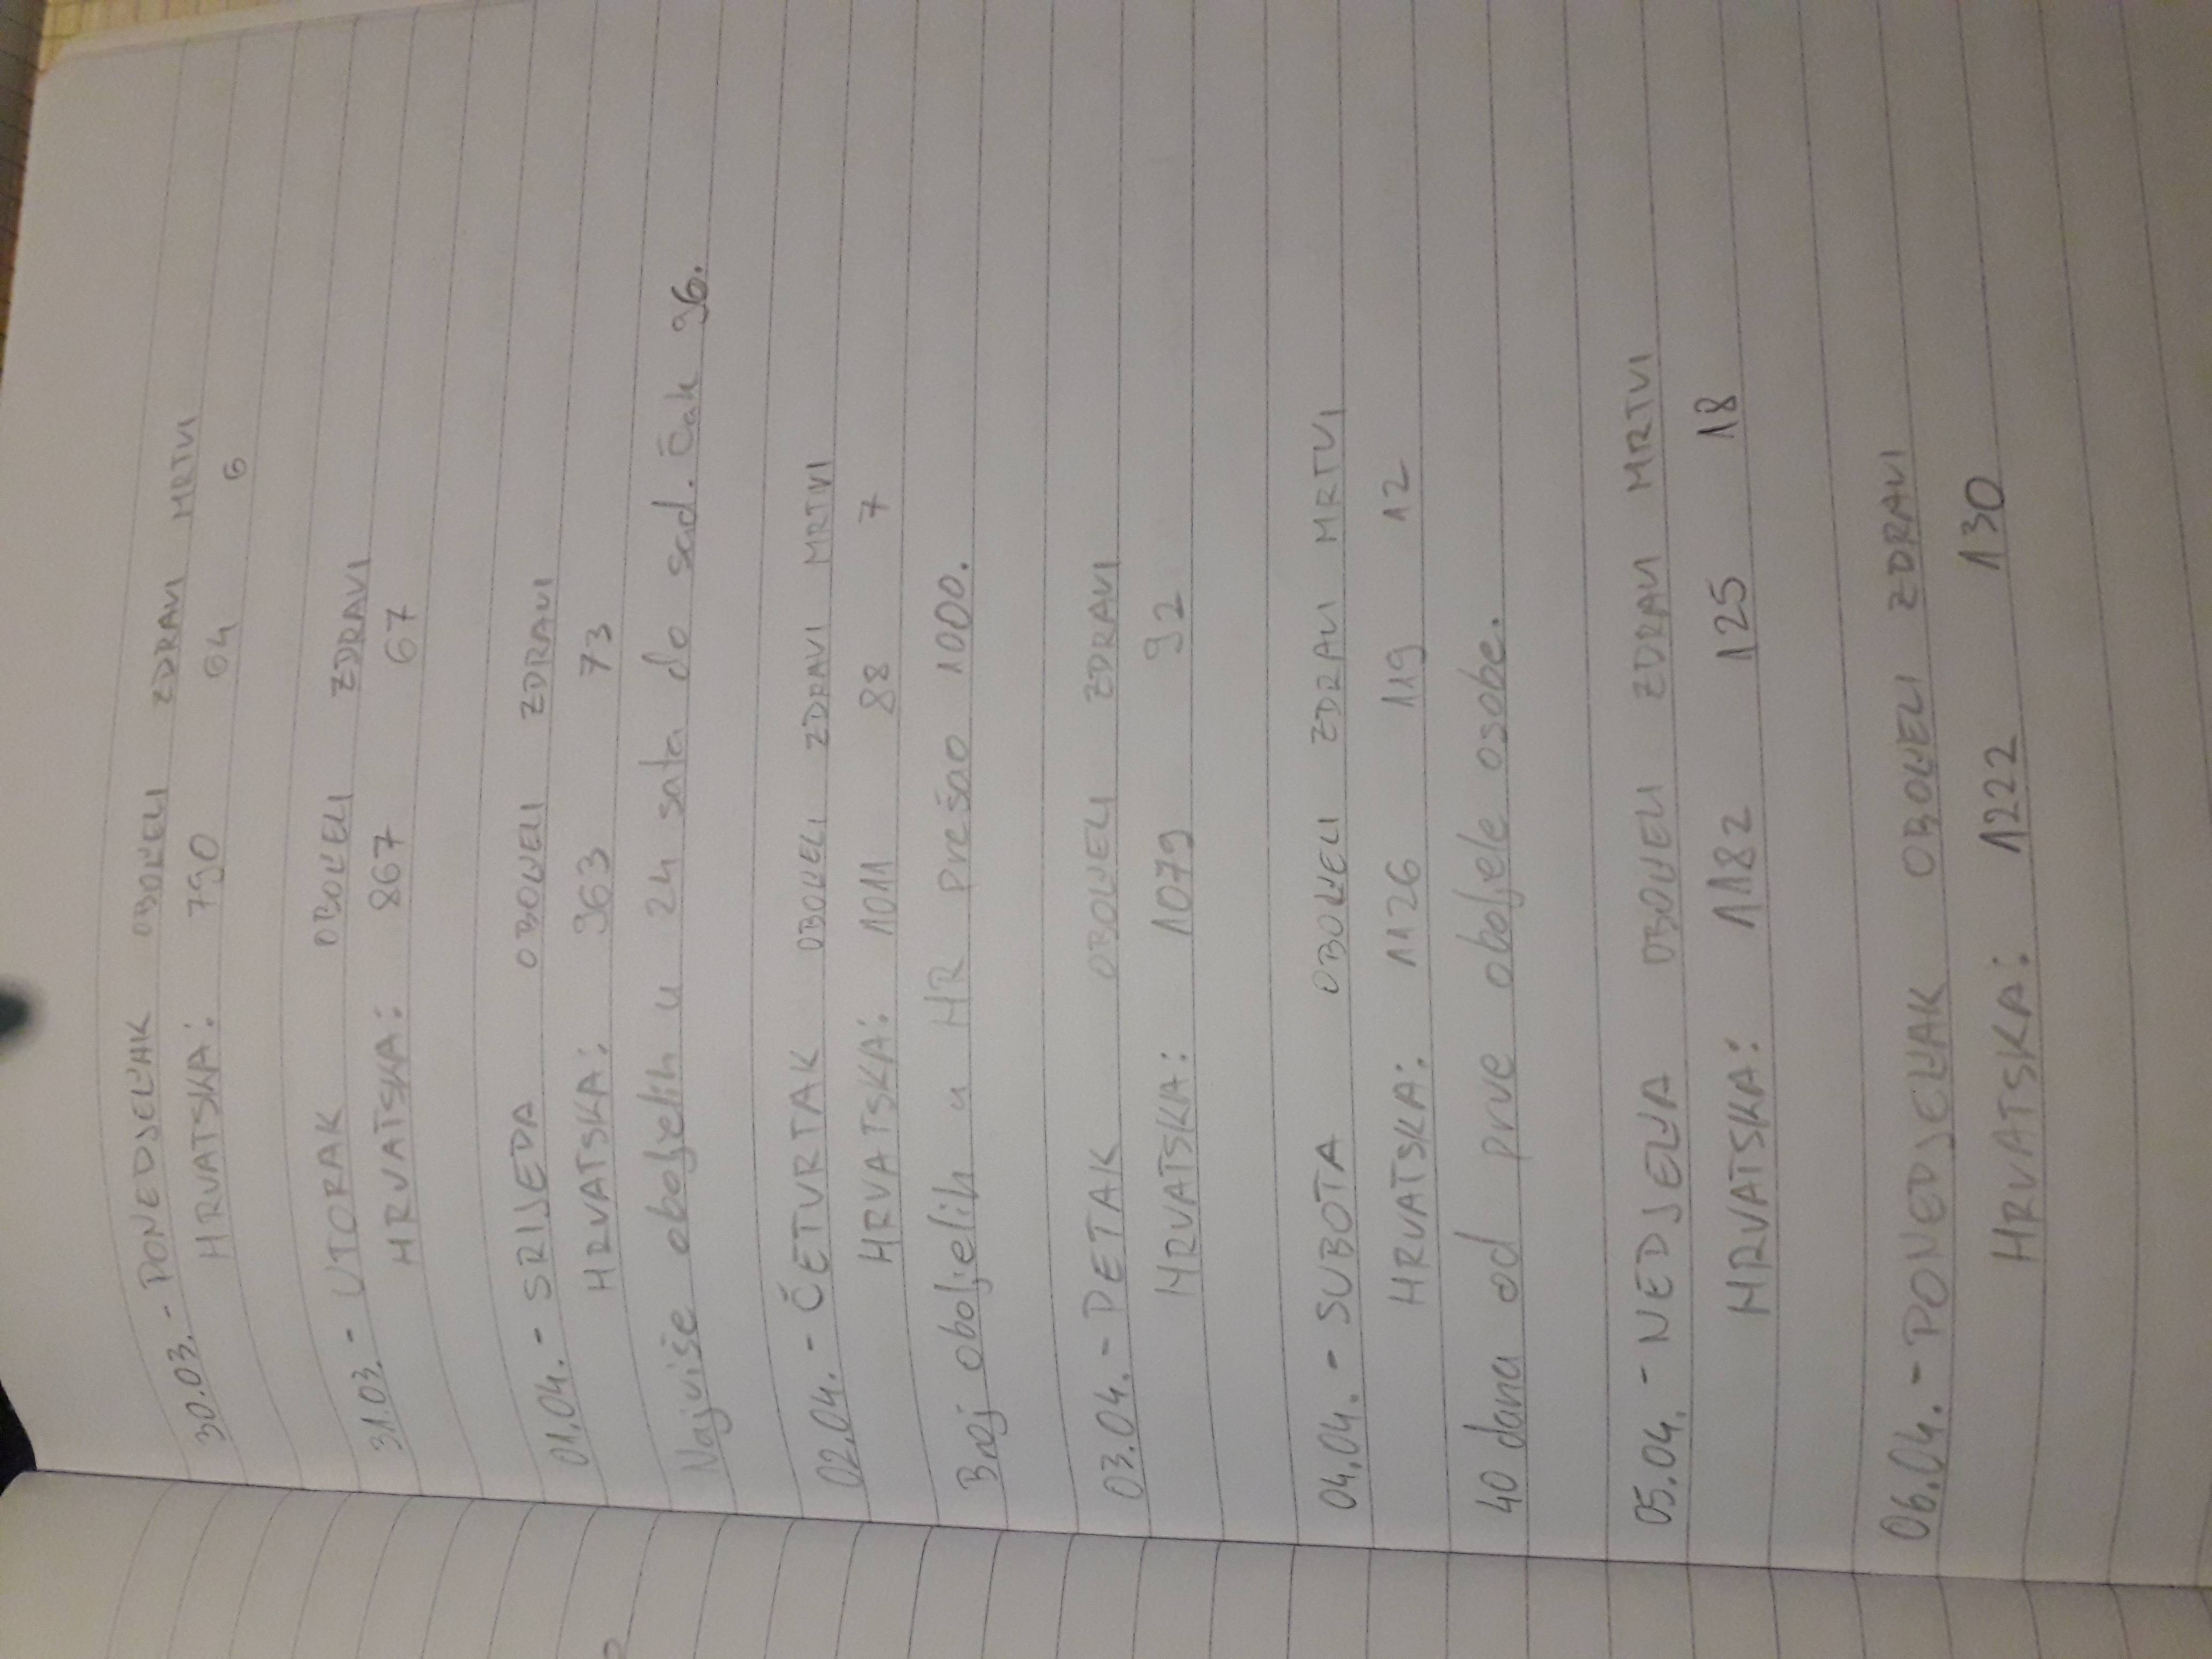 30.03. - PONEDJELJAK OBOLJELI ZDRAVI MRTVI
HRVATSKA: 790 64 6
31.03. - UTORAK OBOLJELI ZDRAVI
HRVATSKA: 867 67
01.04. - SRIJEDA OBOLJELI ZDRAVI
HRVATSKA: 963 73
Najviše oboljelih u 24 sata do sad. Čak 96.
02.04. - ČETVRTAK OBOLJELI ZDRAVI MRTVI
HRVATSKA: 1011 88 7
Broj oboljelih u HR prešao 1000.
03.04. - PETAK OBOLJELI ZDRAVI
HRVATSKA: 1079 92
04.04. - SUBOTA OBOLJELI ZDRAVI MRTVI
HRVATSKA: 1126 119 12
40 dana od prve oboljele osobe.
05.04. - NEDJELJA OBOLJELI ZDRAVI MRTVI
HRVATSKA: 1182 125 18
06.04. - PONEDJELJAK OBOLJELI ZDRAVI
HRVATSKA: 1222 130